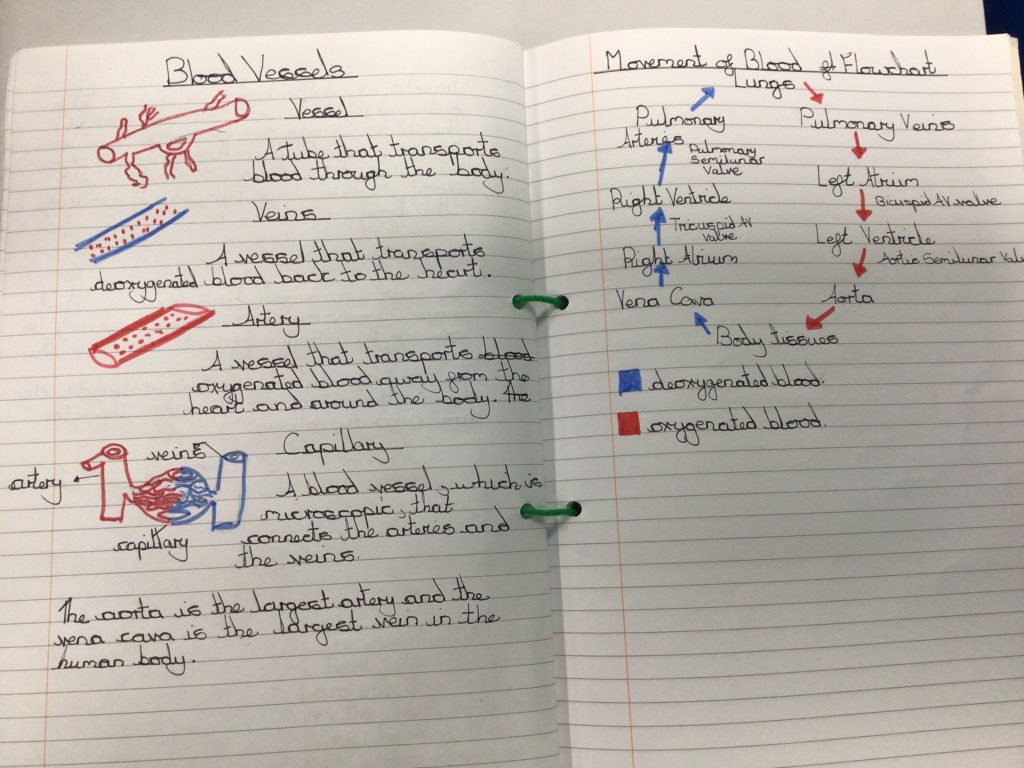 Blood Vessels
Vessel
A tube that transports
blood through the body.
Veins
A vessel that transports
deoxygenated blood back to the heart.
Artery
A vessel that transports blood
oxygenated blood away from the
heart and around the body. the
Capillary
veins
artery
capillary
A blood vessel, which is
microscopic, that
connects the arteries and
the veins.
The aorta is the largest artery and the
vena cava is the largest vein in the
human body.
Movement of Blood Flowchart
Lungs
Pulmonary
Arteries
Pulmonary Veins
Pulmonary
Semilunar
Valve
Left Atrium
Right Ventricle
Bicuspid AV valve
Tricuspid AV
valve
Left Ventricle
Right Atrium
Aortic Semilunar Valv
Vena Cava
Aorta
Body tissues
deoxygenated blood.
oxygenated blood.